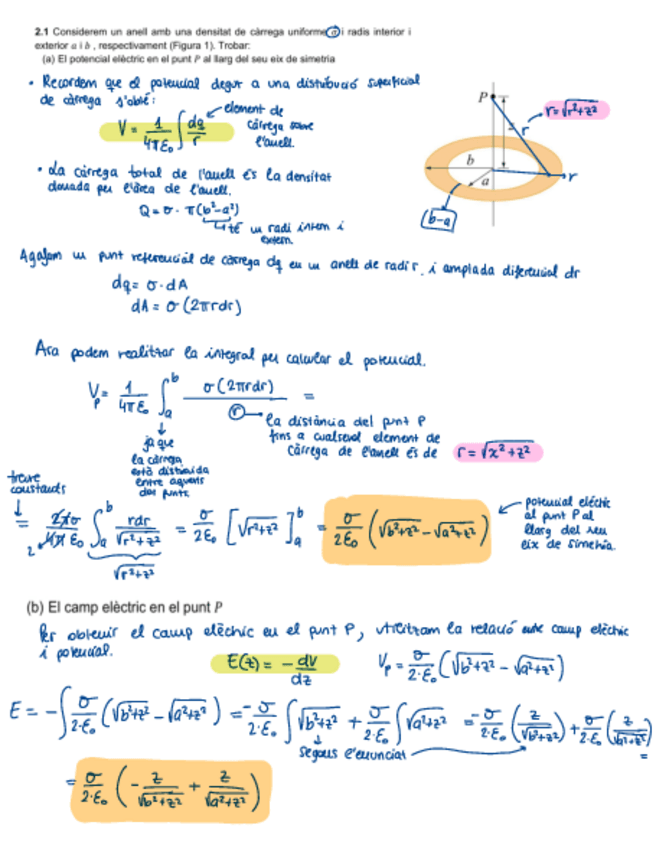 2.1 Considerem un anell amb una densitat de càrrega uniforme σ i radis interior i
exterior a i b , respectivament (Figura 1). Trobar:
(a) El potencial elèctric en el punt P al llarg del seu eix de simetria
• Recordem que el potencial degut a una distribució superficial
de càrrega s'obté:
V = 1/4πε₀ ∫ dq/r
element de
càrrega sobre
l'anell.
P
r = √r²+z²
r
b
a
r
(b-a)
• La càrrega total de l'anell és la densitat
donada per l'àrea de l'anell.
Q = σ · π(b²-a²)
té un radi intern i
extern
Agafem un punt referencial de càrrega dq en un anell de radi r, i amplada diferencial dr
dq = σ · dA
dA = σ (2πrdr)
Ara podem realitzar la integral per calcular el potencial.
V_P = 1/4πε₀ ∫_a^b σ(2πrdr)/r =
ja que
la càrrega
està distribuida
entre aquests
dos punts
la distància del punt P
fins a qualsevol element de
càrrega de l'anell és de r = √x²+z²
treure
constants
= 2πσ/4πε₀ ∫_a^b rdr/√r²+z² = σ/2ε₀ [√r²+z²]_a^b = σ/2ε₀ (√b²+z² - √a²+z²)
2
√r²+z²
potencial elèctric
al punt P al
llarg del seu
eix de simetria.
(b) El camp elèctric en el punt P
Per obtenir el camp elèctric en el punt P, utilitzam la relació entre camp elèctric
i potencial.
E(z) = - dV/dz
V_P = σ/2·ε₀ (√b²+z² - √a²+z²)
E = -∫ σ/2·ε₀ (√b²+z² - √a²+z²) = -σ/2·ε₀ ∫ √b²+z² + σ/2·ε₀ ∫ √a²+z² = -σ/2·ε₀ (z/√b²+z²) + σ/2·ε₀ (z/√a²+z²) =
segons l'enunciat
= σ/2·ε₀ (- z/√b²+z² + z/√a²+z²)